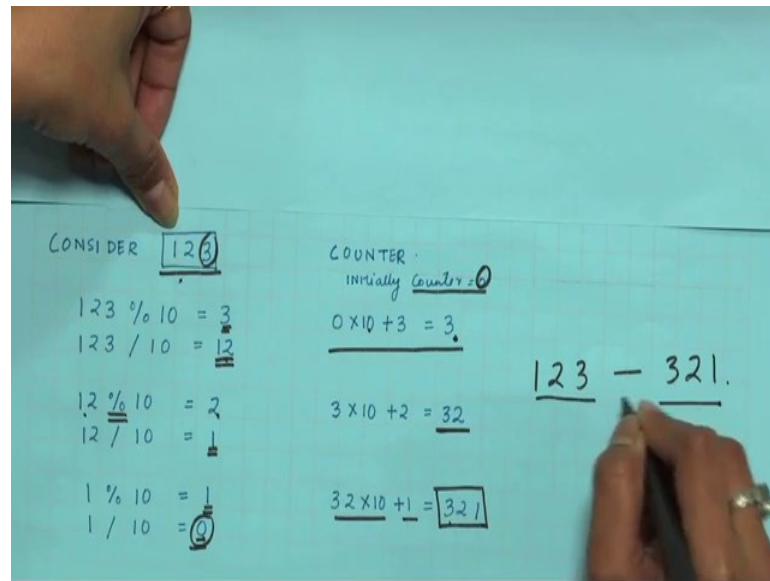 CONSIDER 123
123 % 10 = 3
123 / 10 = 12
12 % 10 = 2
12 / 10 = 1
1 % 10 = 1
1 / 10 = 0
COUNTER.
INITIally Counter = 0
0 × 10 + 3 = 3
3 × 10 + 2 = 32
32 × 10 + 1 = 321
123 — 321.